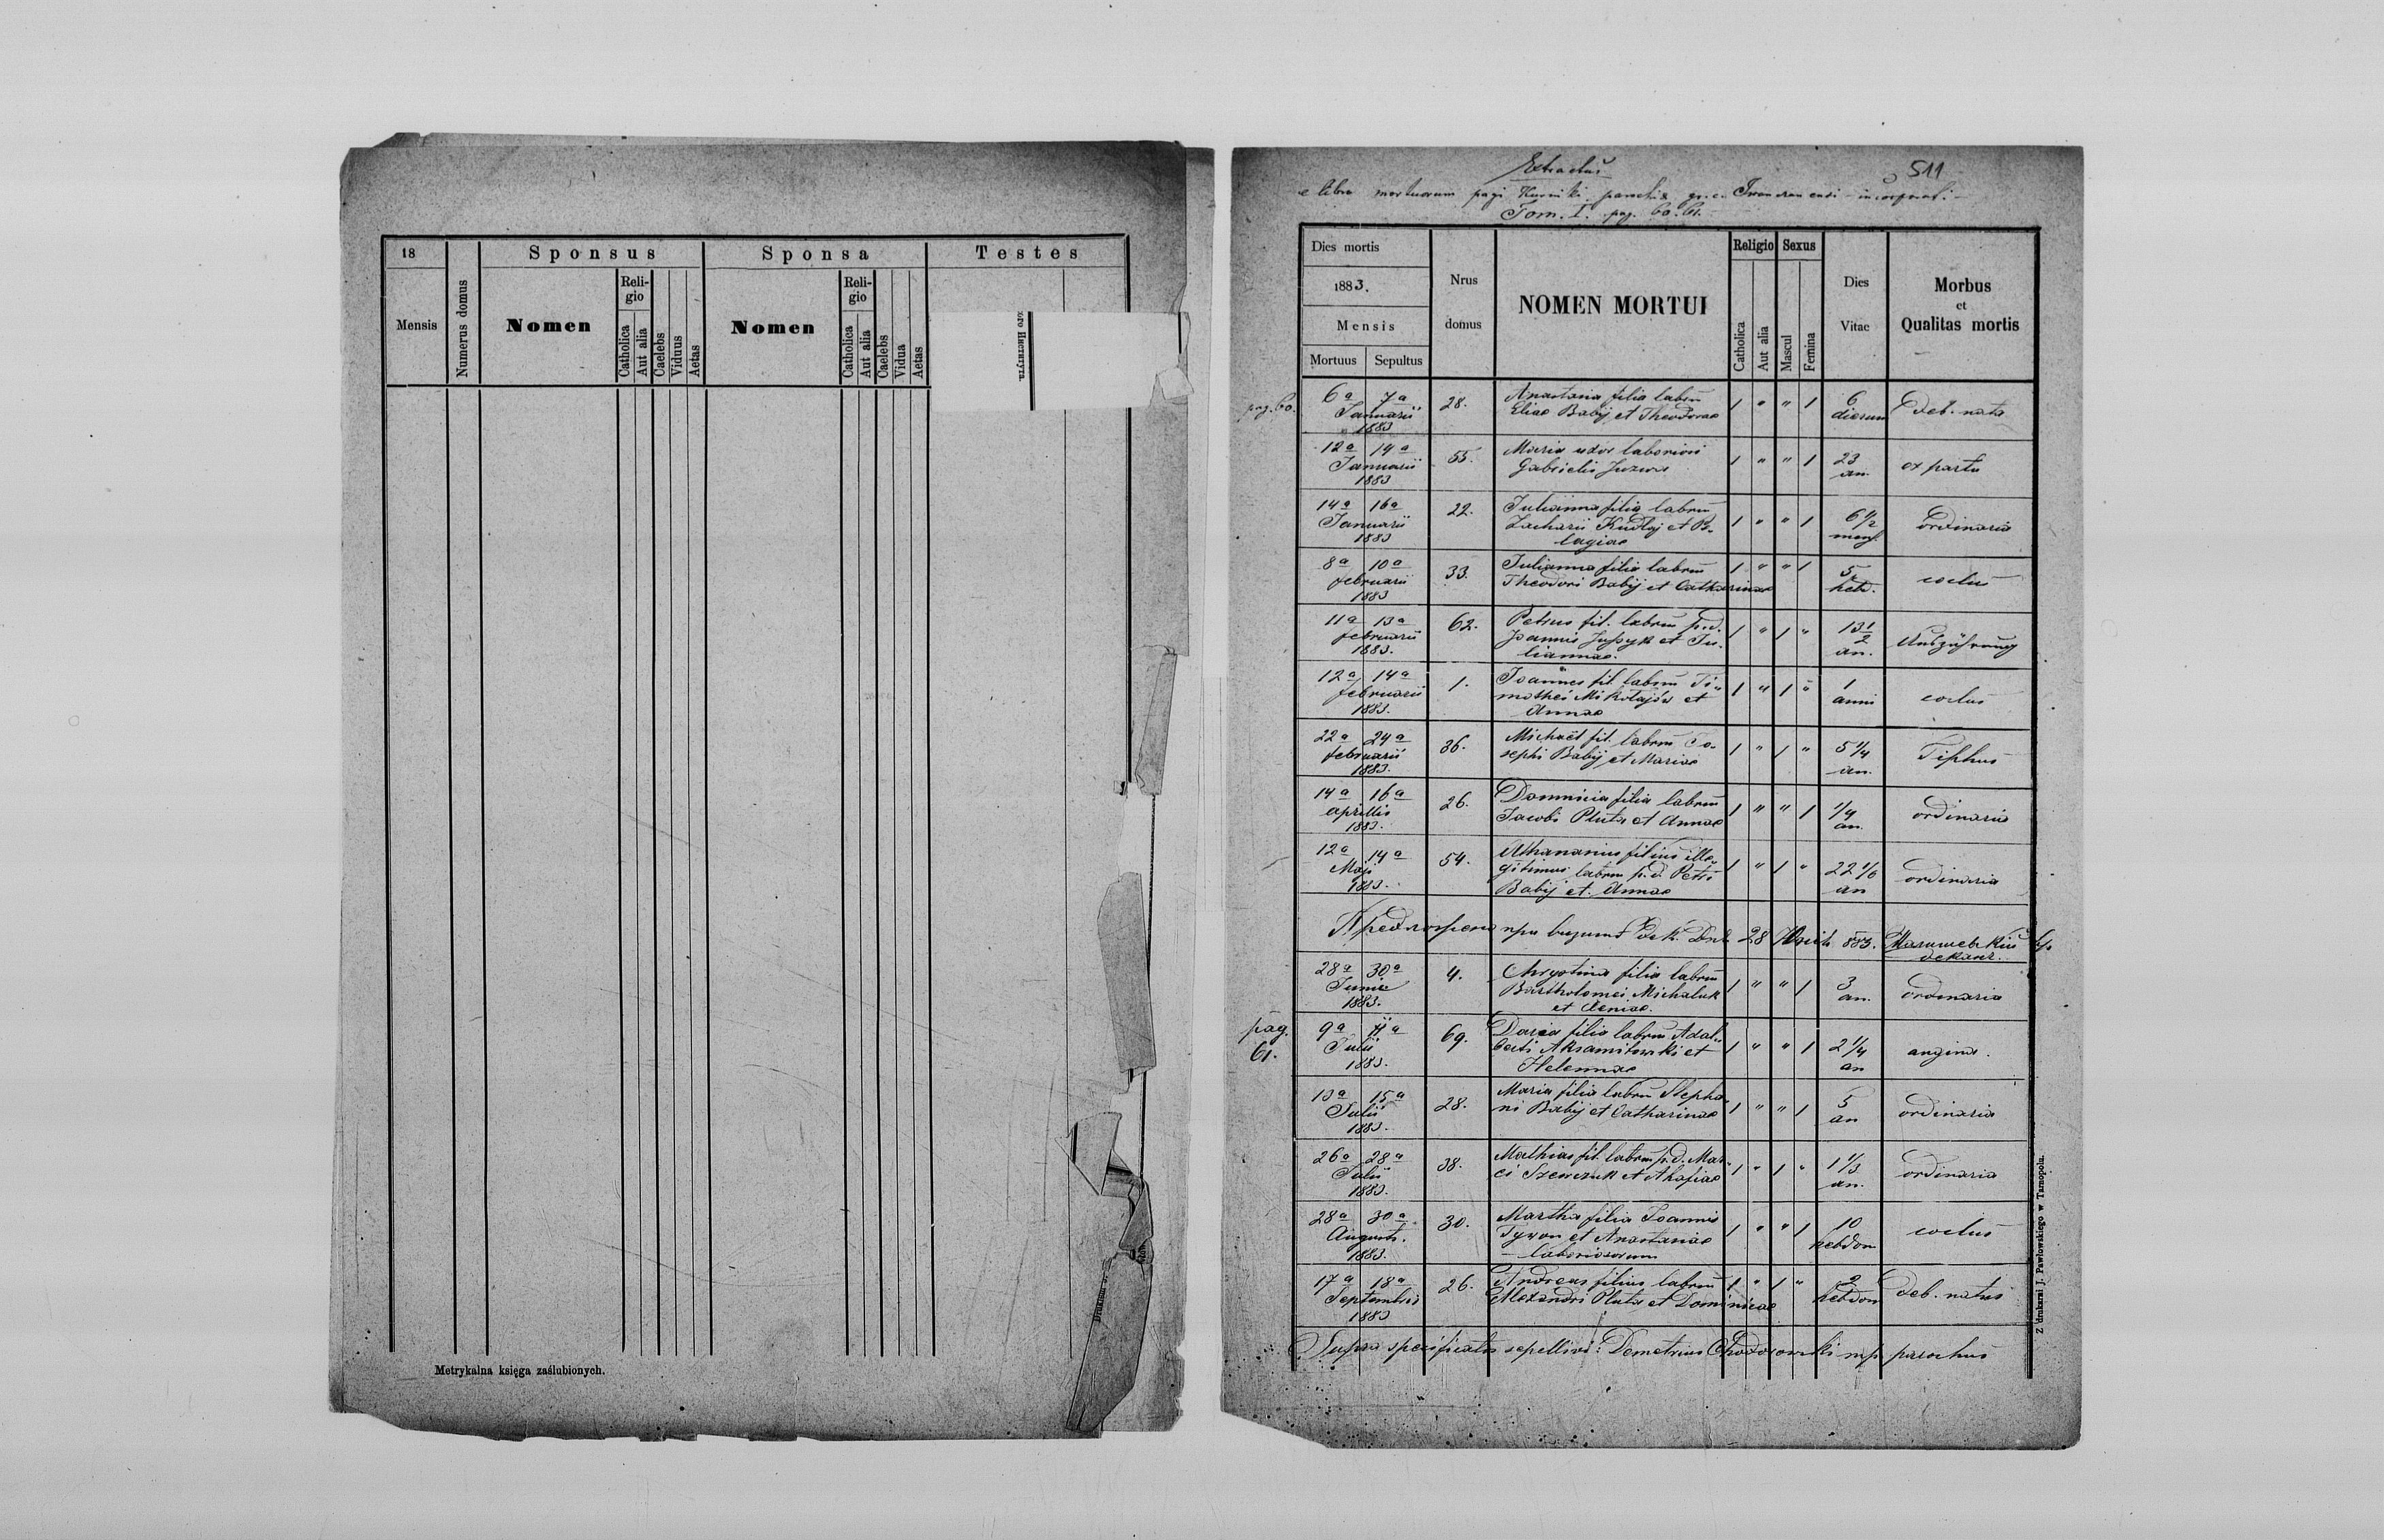 18
Mensis
Numerus domus
Sponsus
Nomen
Reli-
gio
Catholica
Aut alia
Caelebs
Viduus
Aetas
Sponsa
Nomen
Reli-
gio
Catholica
Aut alia
Caelebs
Vidua
Aetas
Testes
Metrykalna księga zaślubionych.
Extractus
511
e libro mortuorum pagi Kurniki parochiae gr. c.
Tom. I. pag. 60. 61.
Dies mortis
1883.
Mensis
Mortuus Sepultus
Nrus
domus
NOMEN MORTUI
Religio
Catholica
Aut alia
Sexus
Mascul
Femina
Dies
Vitae
Morbus
et
Qualitas mortis
pag. 60.
6a 7a
Januarii
1883
28.
Anastasia filia labrum
Eliae Babij et Theodorae
1 " " 1
6
dierum
deb. nata
12a 14a
Januarii
1883
55.
Maria uxor laboriosi
Gabrielis
1 " " 1
23
an.
ex partu
14a 16a
Januarii
1883
22.
Julianna filia labrum
Zacharii Kudłaj et Pe-
lagiae
1 " " 1
6 1/2
mens.
ordinaria
8a 10a
februarii
1883
33.
Julianna filia labrum
Theodori Babij et Catharinae
1 " " 1
5
hebd.
11a 13a
februarii
1883.
62.
Petrus fil. labrum p.d.
Joannis et Ju-
liannae.
1 " 1 "
13 1/2
an.
Auszehrung
12a 14a
februarii
1883.
1.
Joannes fil. labrum Ti-
mothei Mikołajów et
Annae
1 " 1 "
1
anni
22a 24a
februarii
1883.
36.
Michaël fil. labrum Jo-
sephi Babij et Mariae
1 " 1 "
5 1/4
an.
Tiphus
14a 16a
aprillis
1883.
26.
Dominicia filia labrum
Jacobi Pluta et Annae
1 " " 1
1/4
an.
ordinaria
12a 14a
Maji
1883.
54.
Athanasius filius ille-
gitimus labrum p.d. Petri
Babij et Annae
1 " 1 "
22 1/6
an
ordinaria
28 883.
28a 30a
Junii
1883.
4.
Chrystina filia labrum
Bartholomei Michaluk
et Xeniae.
1 " " 1
3
an.
ordinaria
pag.
61.
9a 11a
Julii
1883.
69.
Daria filia labrum Adal-
berti Aksamitowski et
Helennae
1 " " 1
2 1/4
an
angina.
13a 15a
Julii
1883.
28.
Maria filia labrum Stepha-
ni Babij et Catharinae
1 " " 1
5
an
ordinaria
26a 28a
Julii
1883.
38.
Mathias fil. labrum p.d. Mar-
ci Szewczuk et Ahafiae
1 " 1 "
1 1/3
an.
ordinaria
28a 30a
Augusti.
1883.
30.
Martha filia Joannis
et Anastasiae
laboriosorum
1 " " 1
10
hebdom
17a 18a
Septembris
1883
26.
Andreas filius labrum
Alexandri Pluta et Dominicae
1 " 1 "
2
hebdom
deb. natus
Supra specificatos sepellivi: Demetrius Chodorowski mp parochus
Z drukarni J. Pawłowskiego w Tarnopolu.